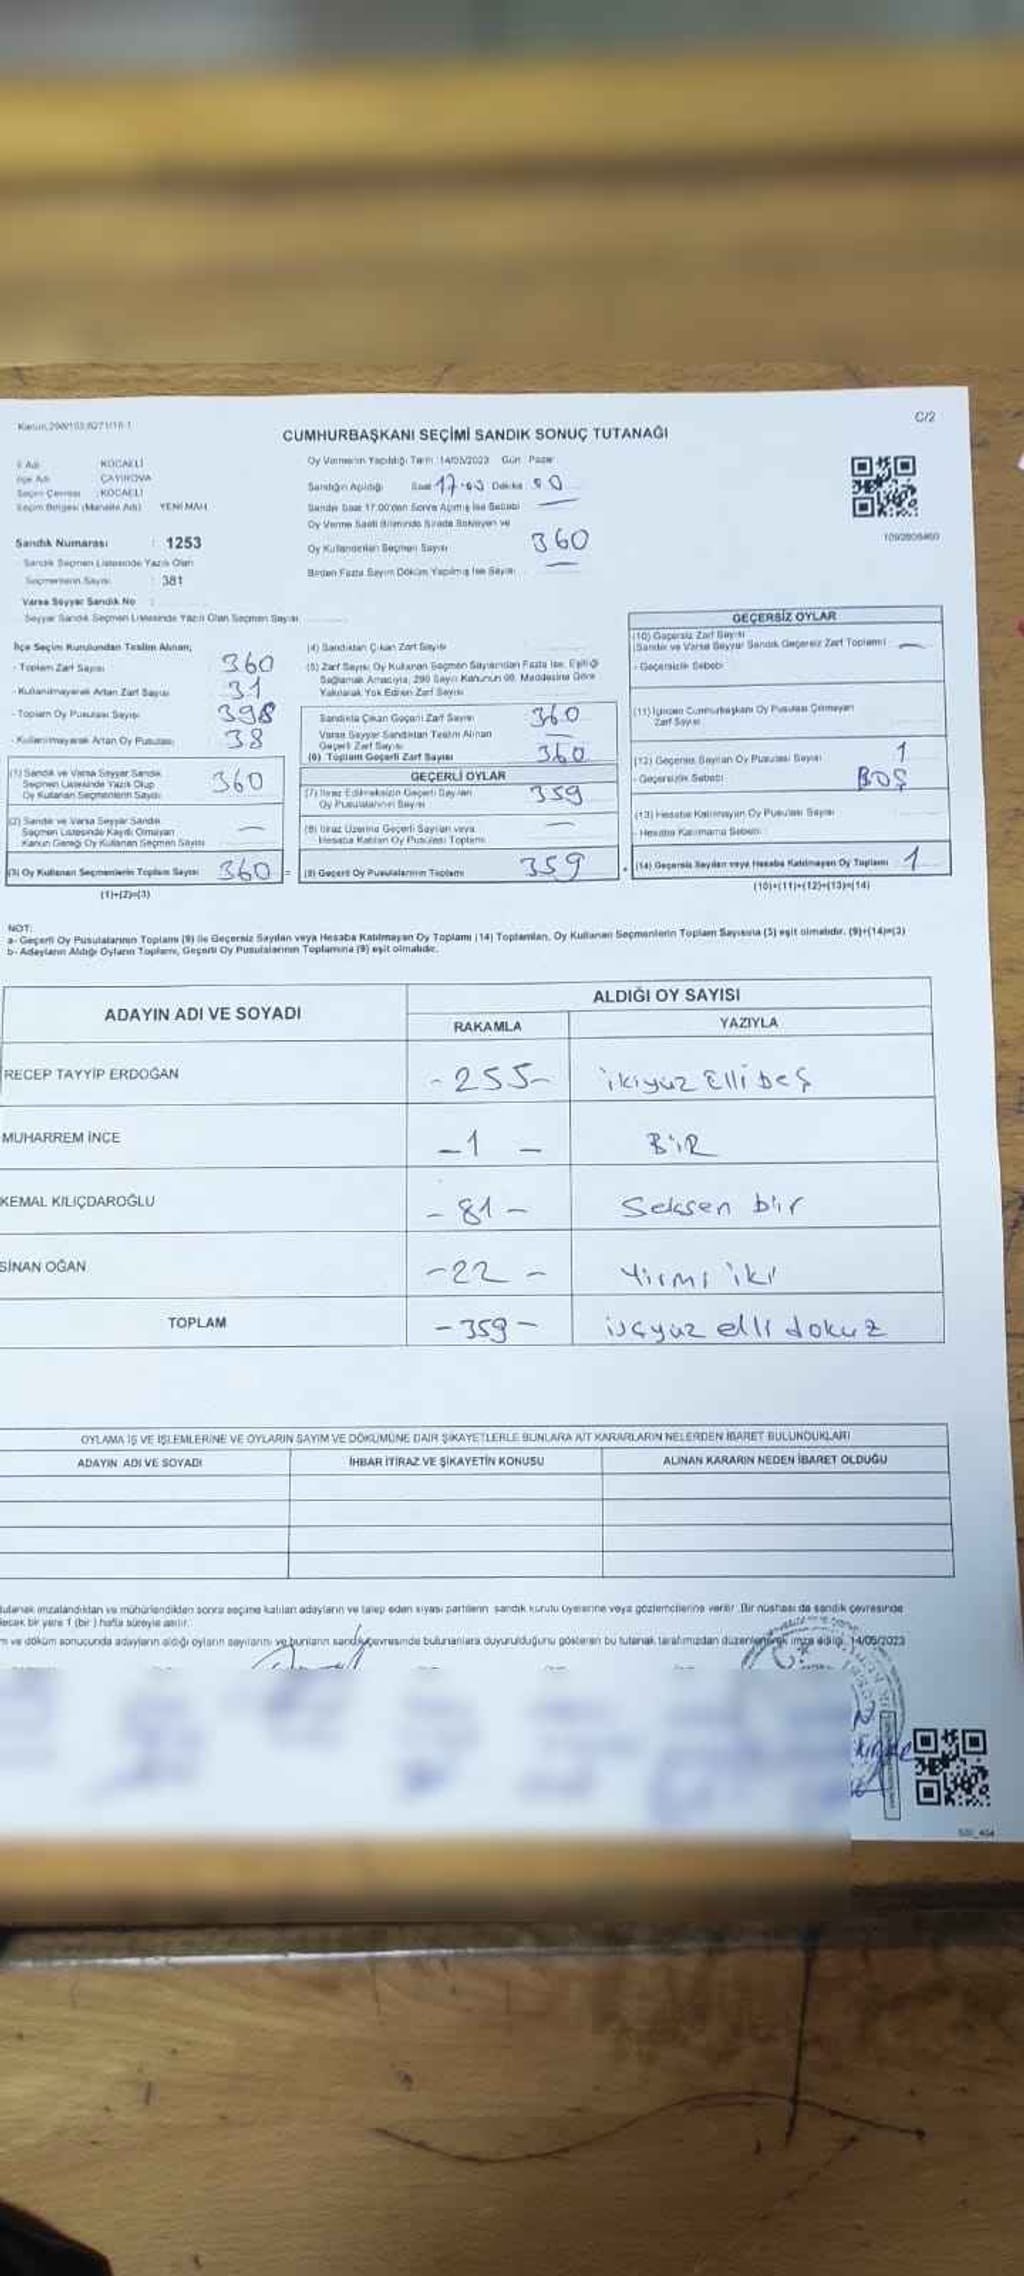 C/2
CUMHURBAŞKANI SEÇİMİ SANDIK SONUÇ TUTANAĞI
İl Adı : KOCAELİ
İlçe Adı : ÇAYIROVA
Seçim Çevresi : KOCAELİ
Seçim Bölgesi (Mahalle Adı) : YENİ MAH.
Sandık Numarası : 1253
Sandık Seçmen Listesinde Yazılı Olan
Seçmenlerin Sayısı : 381
Varsa Seyyar Sandık No :
Seyyar Sandık Seçmen Listesinde Yazılı Olan Seçmen Sayısı
Oy Vermenin Yapıldığı Tarih :14/05/2023 Gün : Pazar
Sandığın Açıldığı Saat 17.00 Dakika
Sandık Saat 17.00'den Sonra Açılmış İse Sebebi
Oy Verme Saati Bitiminde Sırada Bekleyen ve
Oy Kullandırılan Seçmen Sayısı 360
Birden Fazla Sayım Döküm Yapılmış İse Sayısı
İlçe Seçim Kurulundan Teslim Alınan;
- Toplam Zarf Sayısı 360
- Kullanılmayarak Artan Zarf Sayısı 31
- Toplam Oy Pusulası Sayısı 398
- Kullanılmayarak Artan Oy Pusulası 38
(1) Sandık ve Varsa Seyyar Sandık
Seçmen Listesinde Yazılı Olup
Oy Kullanan Seçmenlerin Sayısı 360
(2) Sandık ve Varsa Seyyar Sandık
Seçmen Listesinde Kaydı Olmayan
Kanun Gereği Oy Kullanan Seçmen Sayısı —
(3) Oy Kullanan Seçmenlerin Toplam Sayısı 360 =
(1)+(2)=(3)
(4) Sandıktan Çıkan Zarf Sayısı
(5) Zarf Sayısı Oy Kullanan Seçmen Sayısından Fazla İse, Eşitliği
Sağlamak Amacıyla, 298 Sayılı Kanunun 98. Maddesine Göre
Yakılarak Yok Edilen Zarf Sayısı
Sandıkta Çıkan Geçerli Zarf Sayısı 360
Varsa Seyyar Sandıktan Teslim Alınan
Geçerli Zarf Sayısı —
(6) Toplam Geçerli Zarf Sayısı 360
GEÇERLİ OYLAR
(7) İtiraz Edilmeksizin Geçerli Sayılan
Oy Pusulalarının Sayısı 359
(8) İtiraz Üzerine Geçerli Sayılan veya
Hesaba Katılan Oy Pusulası Toplamı —
(9) Geçerli Oy Pusulalarının Toplamı 359 +
GEÇERSİZ OYLAR
(10) Geçersiz Zarf Sayısı
(Sandık ve Varsa Seyyar Sandık Geçersiz Zarf Toplamı) —
- Geçersizlik Sebebi
(11) İçinden Cumhurbaşkanı Oy Pusulası Çıkmayan
Zarf Sayısı
(12) Geçersiz Sayılan Oy Pusulası Sayısı 1
- Geçersizlik Sebebi BOŞ
(13) Hesaba Katılmayan Oy Pusulası Sayısı
- Hesaba Katılmama Sebebi
(14) Geçersiz Sayılan veya Hesaba Katılmayan Oy Toplamı 1
(10)+(11)+(12)+(13)=(14)
NOT:
a- Geçerli Oy Pusulalarının Toplamı (9) ile Geçersiz Sayılan veya Hesaba Katılmayan Oy Toplamı (14) Toplamları, Oy Kullanan Seçmenlerin Toplam Sayısına (3) eşit olmalıdır. (9)+(14)=(3)
b- Adayların Aldığı Oyların Toplamı, Geçerli Oy Pusulalarının Toplamına (9) eşit olmalıdır.
ADAYIN ADI VE SOYADI
ALDIĞI OY SAYISI
RAKAMLA YAZIYLA
RECEP TAYYİP ERDOĞAN - 255 - ikiyüz Elli beş
MUHARREM İNCE - 1 - BİR
KEMAL KILIÇDAROĞLU - 81 - Seksen bir
SİNAN OĞAN - 22 - Yirmi iki
TOPLAM - 359 - üçyüz elli dokuz
OYLAMA İŞ VE İŞLEMLERİNE VE OYLARIN SAYIM VE DÖKÜMÜNE DAİR ŞİKAYETLERLE BUNLARA AİT KARARLARIN NELERDEN İBARET BULUNDUKLARI
ADAYIN ADI VE SOYADI İHBAR İTİRAZ VE ŞİKAYETİN KONUSU ALINAN KARARIN NEDEN İBARET OLDUĞU
tutanak imzalandıktan ve mühürlendikten sonra seçime katılan adayların ve talep eden siyasi partilerin sandık kurulu üyelerine veya gözlemcilerine verilir. Bir nüshası da sandık çevresinde
bir yere 1 (bir) hafta süreyle asılır.
ve döküm sonucunda adayların aldığı oyların sayılarını ve bunların sandık çevresinde bulunanlara duyurulduğunu gösteren bu tutanak tarafımızdan düzenlenerek imza edildi. 14/05/2023